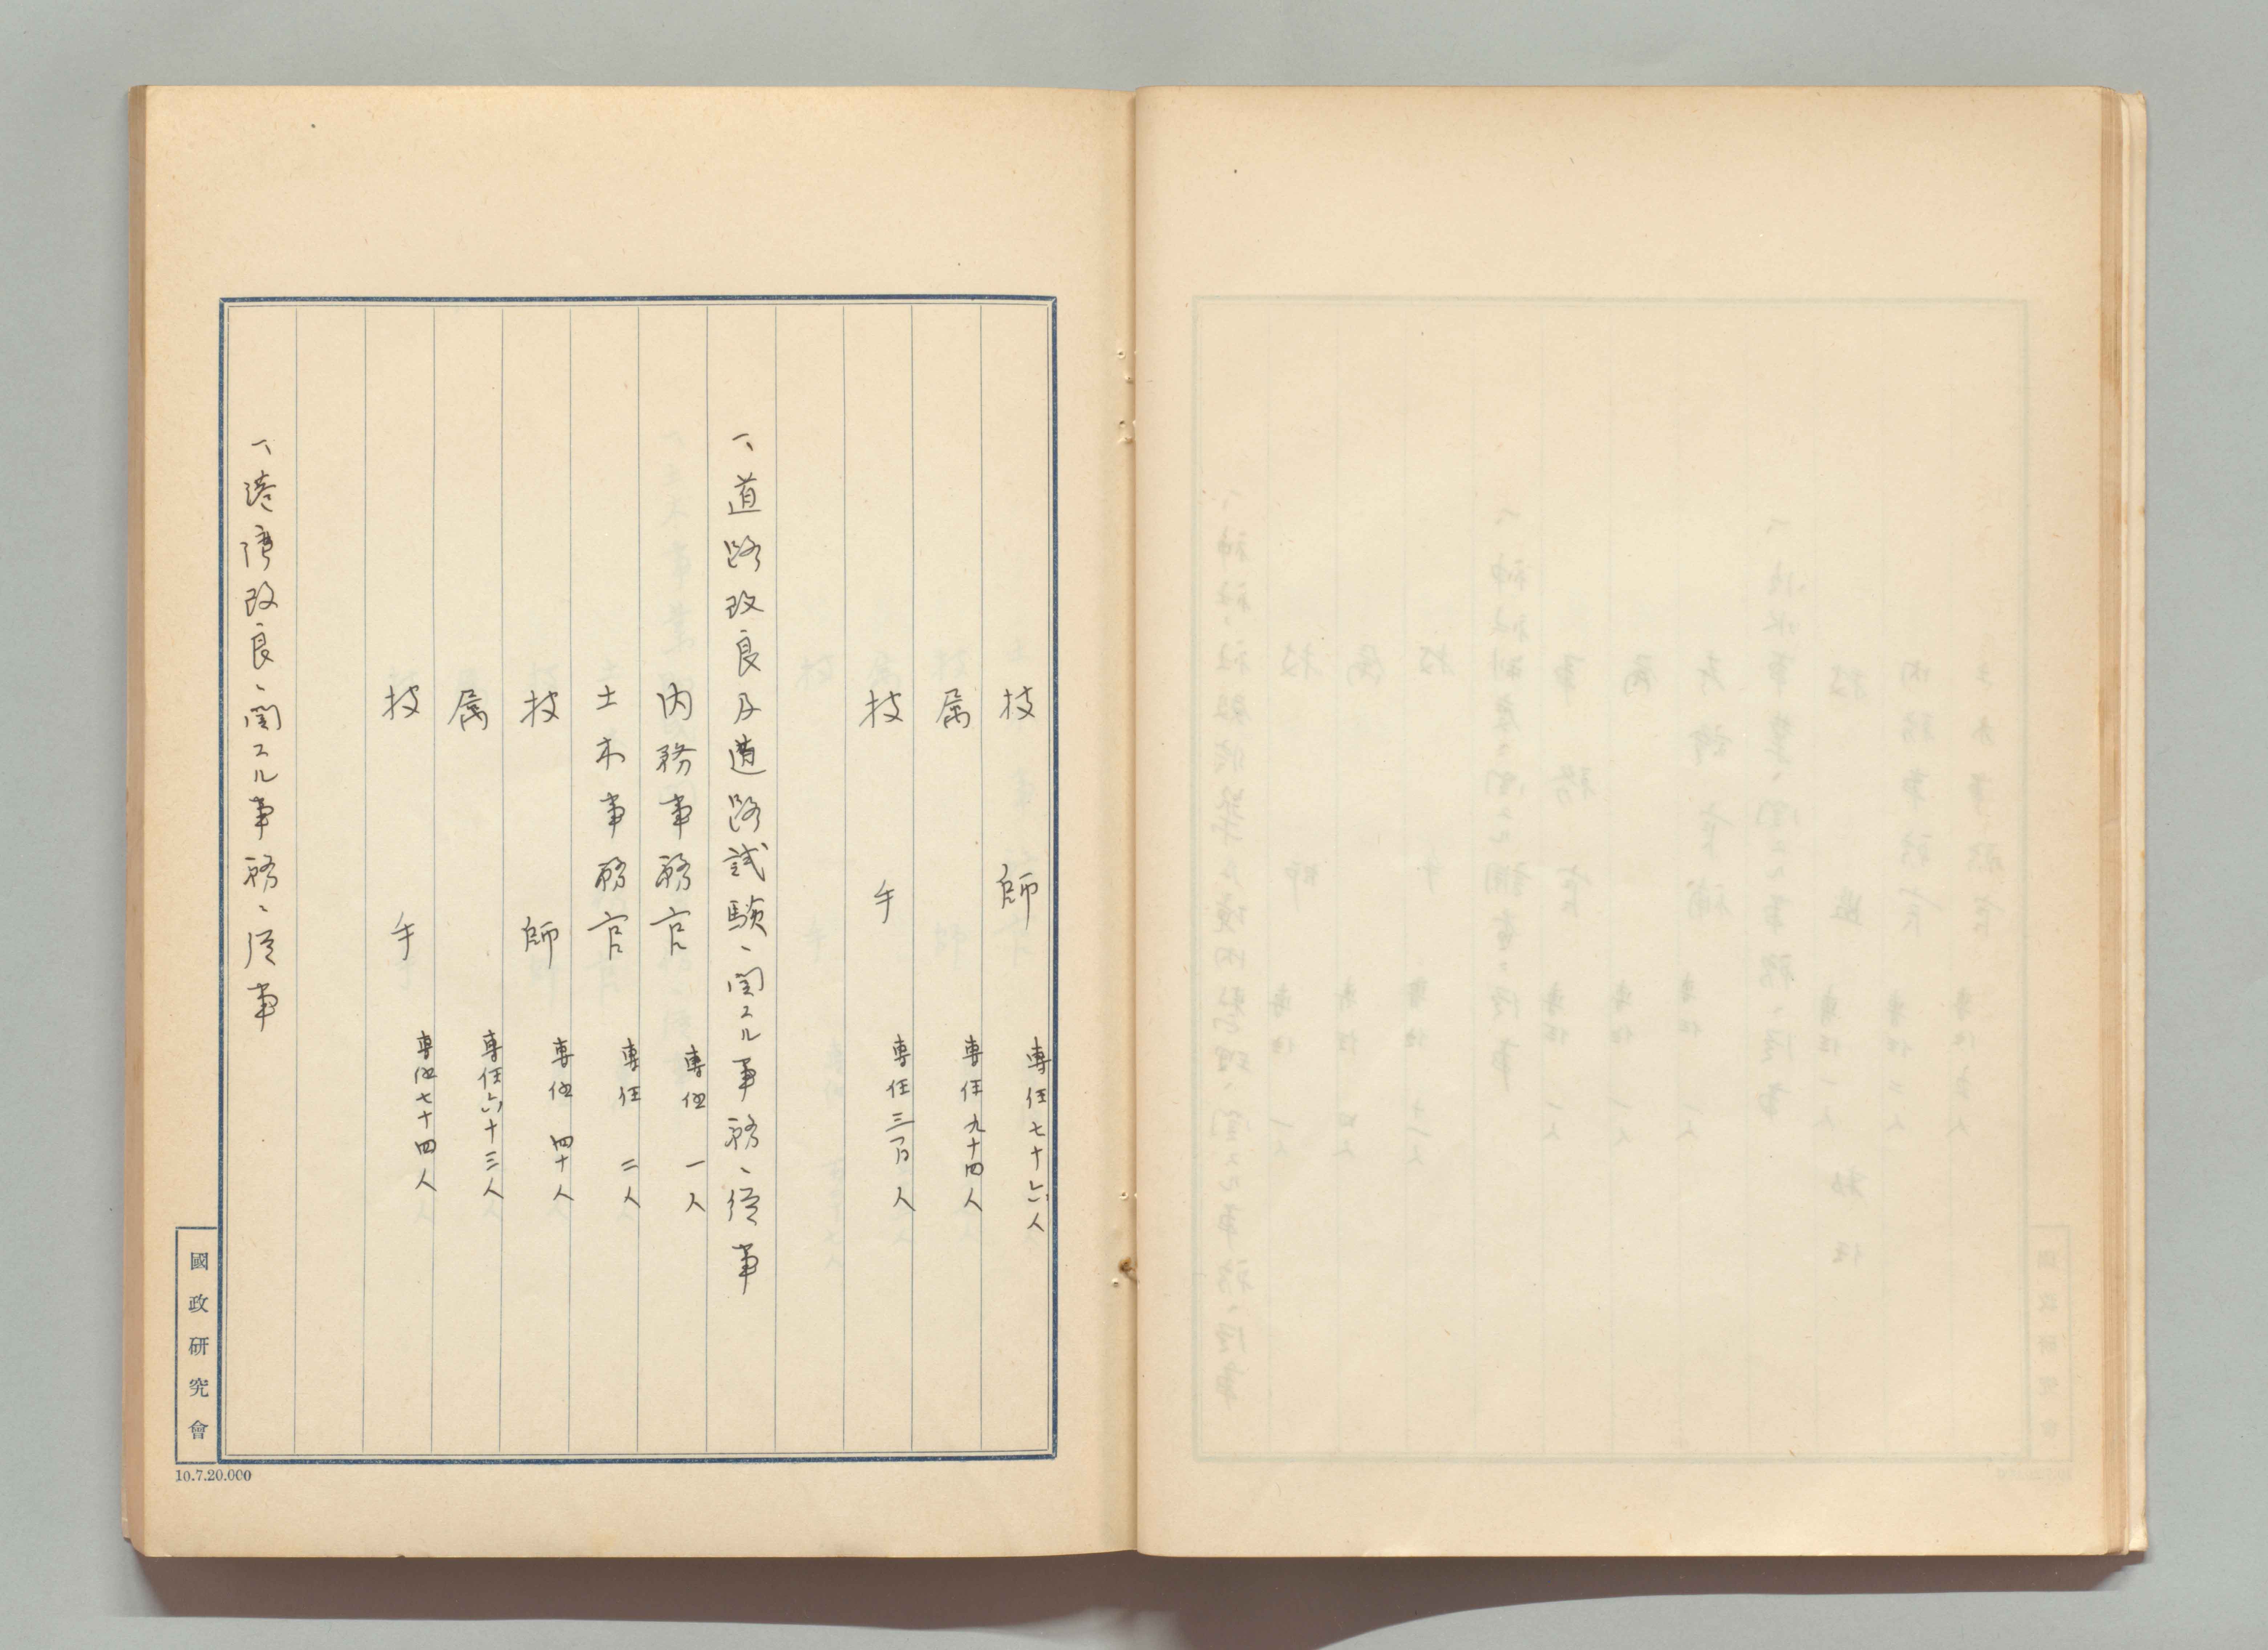 技師 専任七十六人
属 専任九十四人
技手 専任三百人
一、道路改良及道路試験ニ関スル事務ニ従事
内務事務官 専任一人
土木事務官 専任二人
技師 専任四十人
属 専任六十三人
技手 専任七十四人
一、港湾改良ニ関スル事務ニ従事
國政研究會
10.7.20.000